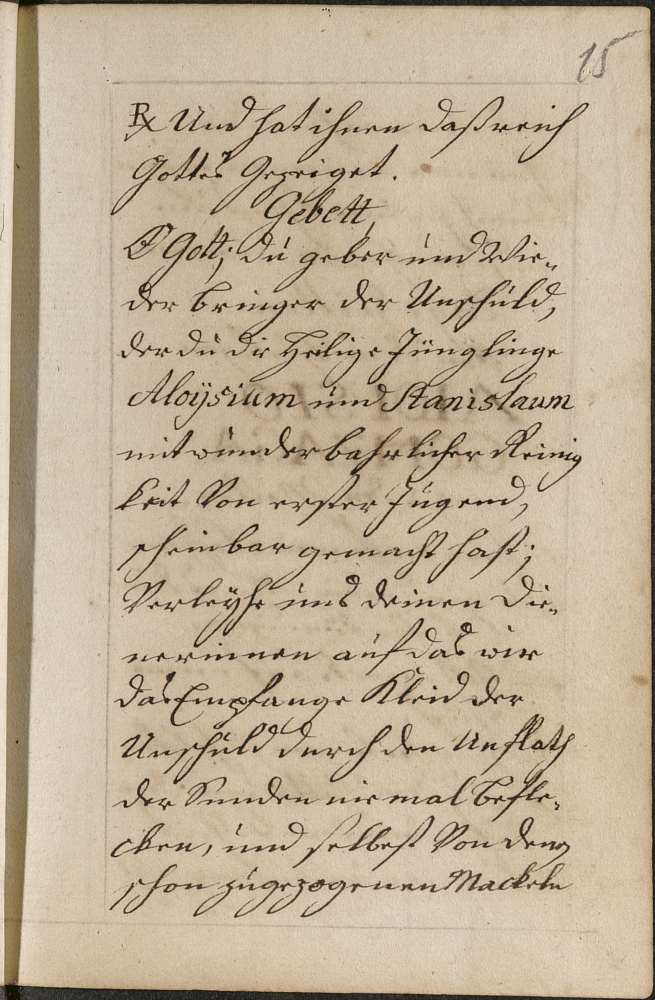 15
℞ Und hat ihnen daß reich
Gottes Gezeiget.
Gebett,
O Gott; du geber und Wie„
der bringer der Unschuld,
der du die Heilige Jünglinge
Aloÿsium und Stanislaum
mit wunderbahrlicher Reinig
keit Von erster Jugend,
scheinbar gemacht hast;
Verleÿhe uns deinen Die„
nerinnen auf das wir
das Empfange Kleid der
Unschuld durch den Unflath
der Sunden niemal befle„
cken, und selbest Von deng
schon zugezogenen Mackeln